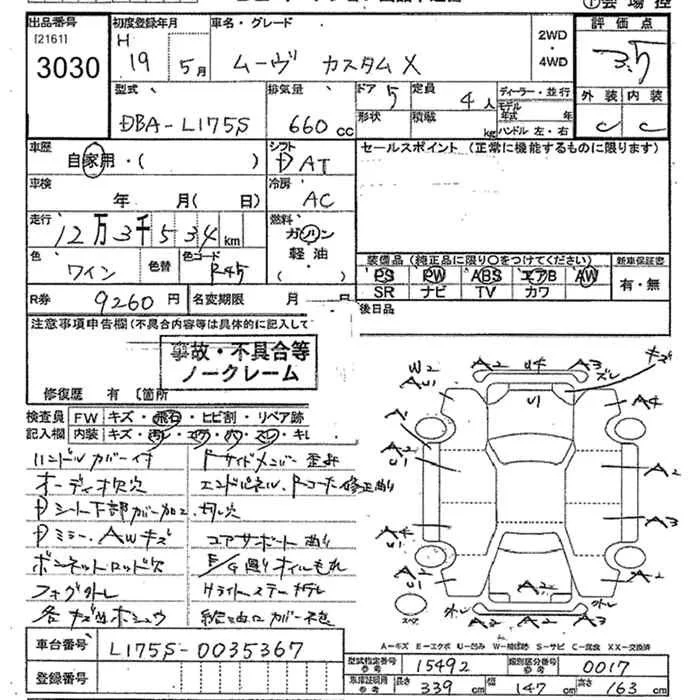 出品番号
[2161]
3030
初度登録年月
H 19 5月
車名・グレード
ムーヴ カスタムX
2WD
・
4WD
評価点
3.5
外装 内装
C C
型式
DBA-L175S
排気量
660 cc
ドア 5
定員 4人
形状
積載 kg
ディーラー・並行
モデル年式 年
ハンドル 左・右
車歴
自家用・( )
シフト
D AT
セールスポイント (正常に機能するものに限ります)
車検
年 月( 日)
冷房
AC
走行
12万3千534km
燃料
ガソリン
軽油
・( )
色
ワイン
色替
色コード
R45
装備品 (純正品に限り○をつけてください)
PS PW ABS エアB AW
SR ナビ TV カワ
新車保証書
有・無
R券 9260円
名変期限 月
後日品
注意事項申告欄(不具合内容等は具体的に記入して
事故・不具合等
ノークレーム
修復歴 有 〔箇所
検査員
記入欄
FW キズ・飛石・ヒビ割・リペア跡
内装 キズ・汚レ・コゲ・穴・スレ・キレ
ハンドルカバー付
オーディオ欠穴
Dシート下部カバー加工、切レ穴
Dミラー、AWキズ
ボンネットロッド欠
フォグ外レ
各キズ凹ホシュウ
Fサイドメンバー歪み
エンドパネル、Rコーナー修正曲り
コアサポート曲り
E/G廻りオイルもれ
W2
AU1
A2
U4
A3
ズレ
キズ
U1
A4
A1
A2
U1
A2
A4
U1
A3
A2
U1
A2
A2
外レ
A2
A2
外レ
スペア
A-キズ E-エクボ U-凹み W-補修跡 S-サビ C-腐食 XX-交換済
車台番号 L175S-0035367
登録番号
型式指定番号
参考
15492
類別区分番号
参考
0017
車庫証明用
参考
長さ 339 cm
幅 147 cm
高さ 163 cm